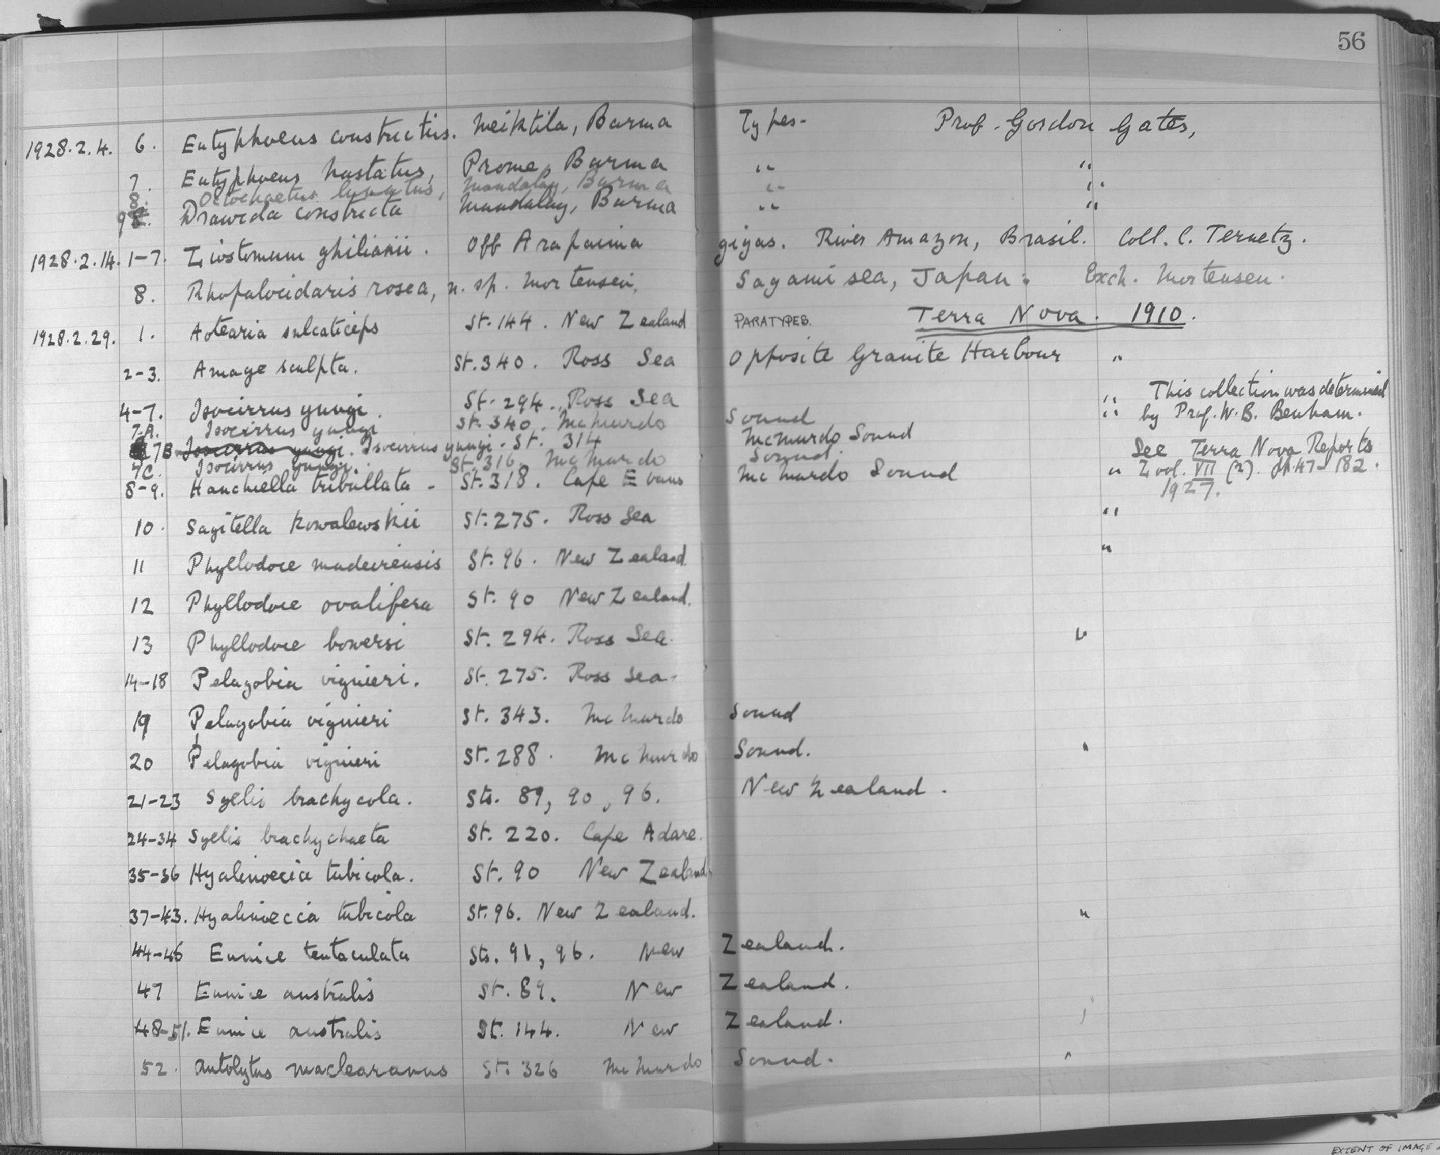 56
1928.2.4. 6. Eutyphoeus constrictus. Meiktila, Burma Types - Prof. Gordon Gates,
7. Eutyphoeus hastatus, Prome, Burma " "
8. Octochaetus Mandalay, Burma " "
9 Drawida constricta Mandalay, Burma " "
1928.2.14. 1-7. Liostomum ghilianii. Off Arapaima gigas. River Amazon, Brasil. Coll. C. Ternetz.
8. Rhopalocidaris rosea, n. sp. Mortensen, Sagami sea, Japan: Exch. Mortensen.
1928.2.29. 1. Aotearia sulcaticeps St. 144. New Zealand PARATYPES. Terra Nova. 1910.
2-3. Amage sculpta. St. 340. Ross Sea Opposite Granite Harbour "
4-7. Isocirrus yungi. St. 294. Ross Sea " This collection was determined
7A. Isocirrus yungi St. 340. McMurdo Sound " by Prof. W. B. Benham.
7B Isocirrus yungi. Isocirrus yungi. St. 314 McMurdo Sound See Terra Nova Reports
7C. Isocirrus yungi. St. 316. McMurdo Sound. Zool. VII (2). pp 47-182.
8-9. Hauchiella tribullata - St. 318. Cape Evans McMurdo Sound " 1927.
10. Sagitella kowalewskii St. 275. Ross Sea "
11 Phyllodoce madeirensis St. 96. New Zealand "
12 Phyllodoce ovalifera St. 90 New Zealand.
13 Phyllodoce bowersi St. 294. Ross Sea. "
14-18 Pelagobia viguieri. St. 275. Ross Sea.
19 Pelagobia viguieri St. 343. McMurdo Sound
20 Pelagobia viguieri St. 288. McMurdo Sound. "
21-23 Syllis brachycola. Sts. 89, 90, 96. New Zealand.
24-34 Syllis brachychaeta St. 220. Cape Adare.
35-36 Hyalinoecia tubicola. St. 90 New Zealand
37-43. Hyalinoecia tubicola St. 96. New Zealand. "
44-46 Eunice tentaculata Sts. 91, 96. New Zealand.
47 Eunice australis St. 89. New Zealand.
48-51. Eunice australis St. 144. New Zealand.
52. Autolytus maclearanus St. 326 McMurdo Sound. "
EXTENT OF IMAGE